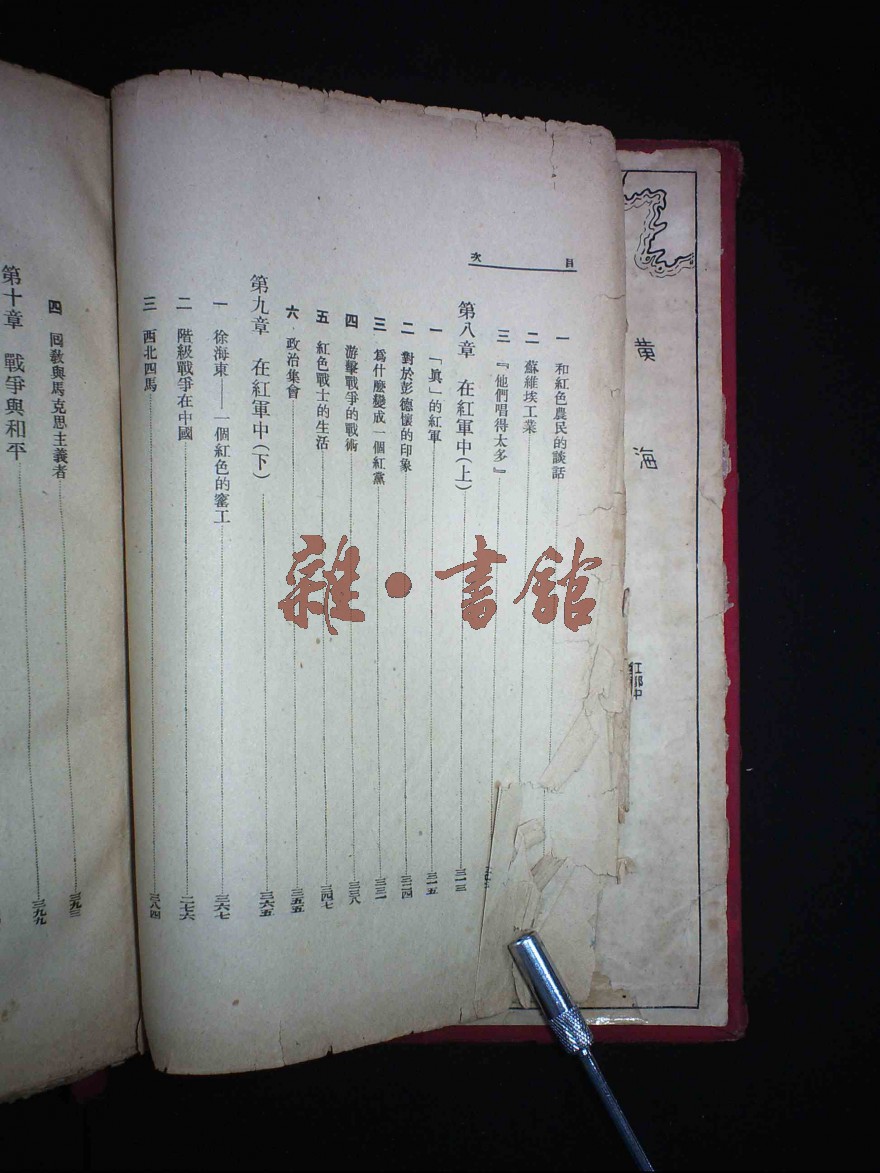 目次
一 和紅色農民的談話
二 蘇維埃工業
三 『他們唱得太多』
第八章 在紅軍中(上) 三一三
一 「眞」的紅軍 三一五
二 對於彭德懷的印象 三二四
三 爲什麼變成一個紅黨 三三一
四 游擊戰爭的戰術 三三八
五 紅色戰士的生活 三四七
六 政治集會 三五五
第九章 在紅軍中(下) 三六五
一 徐海東——一個紅色的窰工 三六七
二 階級戰爭在中國 二七六
三 西北四馬 三八四
四 回敎與馬克思主義者 三九三
第十章 戰爭與和平 三九九
黄海
雜·書館